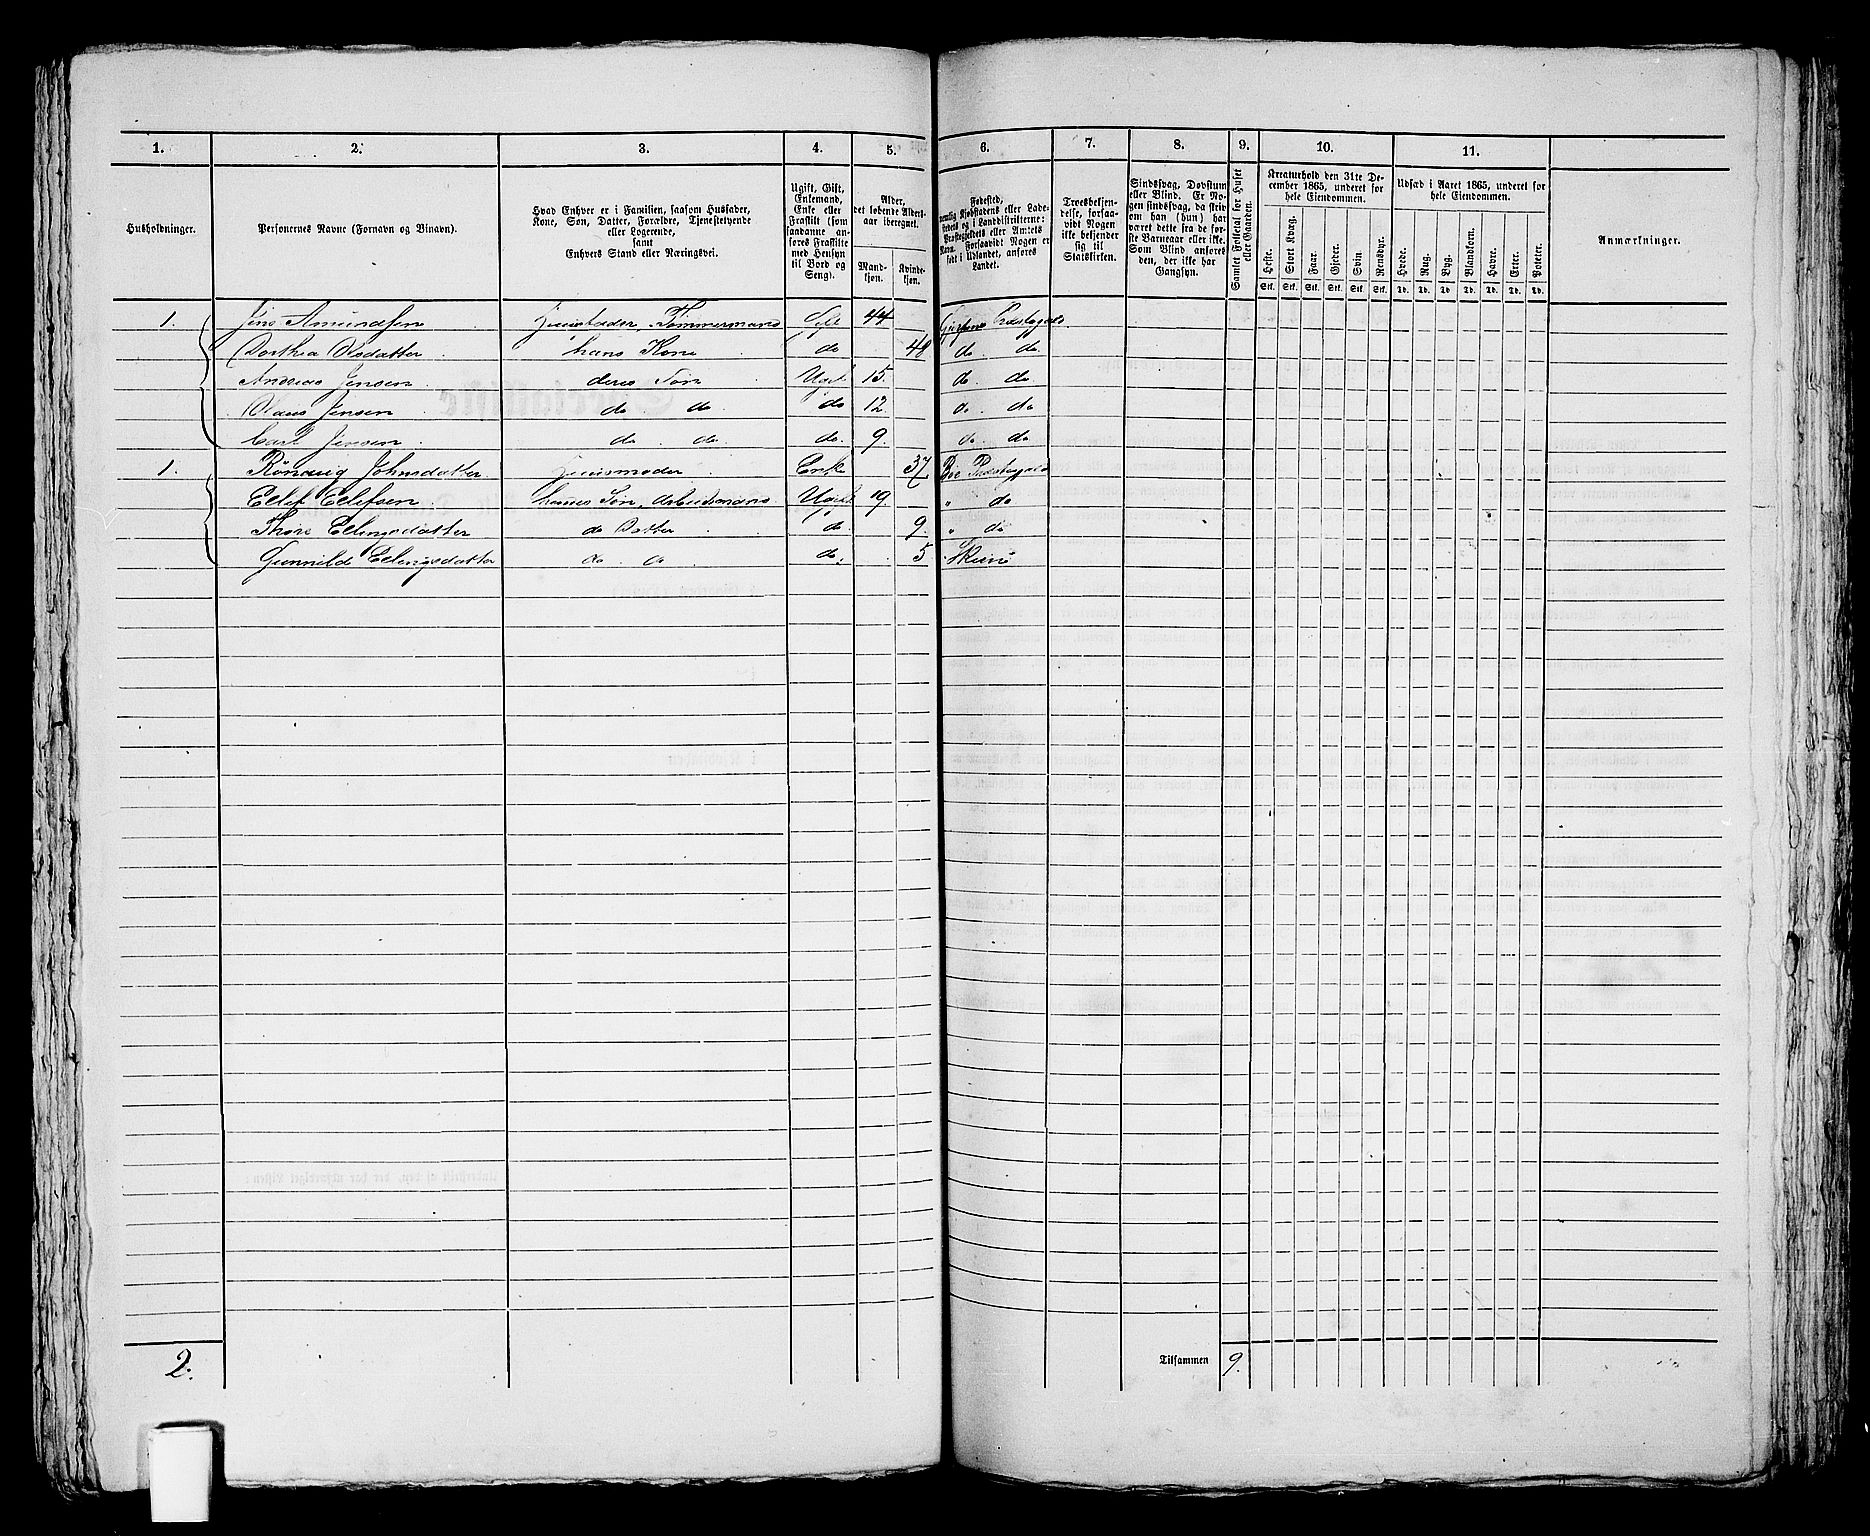 1. 2. 3. 4. 5. 6. 7. 8. 9. 10. 11.
Husholdninger.
Personernes Navne (Fornavn og Binavn).
Hvad Enhver er i Familien, saasom Husfader,
Kone, Søn, Datter, Forældre, Tjenestetyende
eller Logerende,
samt
Enhvers Stand eller Næringsvei.
Ugift, Gift,
Enkemand,
Enke eller
Fraskilt (som
saadanne an-
føres Fraskilte
med Hensyn
til Bord og
Seng).
Alder,
det løbende Alders-
aar iberegnet.
Mand-
kjøn.
Kvinde-
kjøn.
Fødested,
nemlig Kjøbstadens eller Lade-
stedets og i Landdistrikterne:
Præstegjeldets eller Amtets
Navn. Forsaavidt Nogen er
født i Udlandet, anføres
Landet.
Troesbekjen-
delse, forsaa-
vidt Nogen
ikke bekjender
sig til
Statskirken.
Sindssvag, Døvstum
eller Blind. Er No-
gen sindssvag, da skriv
om han (hun) har
været dette fra de før-
ste Barneaar eller ikke.
Som Blind anføres
den, der ikke har
Gangsyn.
Samlet Folketal for Huset
eller Gaarden.
Kreaturhold den 31te De-
cember 1865, underet for
hele Eiendommen.
Heste. Stort Kvæg. Faar. Gjeder. Svin. Rensdyr.
Stk. Stk. Stk. Stk. Stk. Stk.
Udsæd i Aaret 1865, underet for
hele Eiendommen.
Hvede. Rug. Byg. Blandkorn. Havre. Erter. Poteter.
Td. Td. Td. Td. Td. Td. Td.
Anmærkninger.
1. Jens Amundsen Huusfader, Tømmermand Gift 44 Gjerpens Præstegjeld
Dorthea Olsdatter hans Kone do 48 do. do
Andreas Jensen deres Søn Ugift 15. do. do
Claus Jensen do. do do 12 do. do
Carl Jensen do. do. do. 9. do. do
1. Rønaug Johnsdatter Huusmoder Enke 37 Bøe Præstegjeld
Ellef Ellefsen hennes Søn, Arbeidsmand Ugift 19. " do
Thore Ellingsdatter do Datter do 9. " do
Gunnild Ellingsdatter do. do do. 5 Skien
2.
Tilsammen 9.